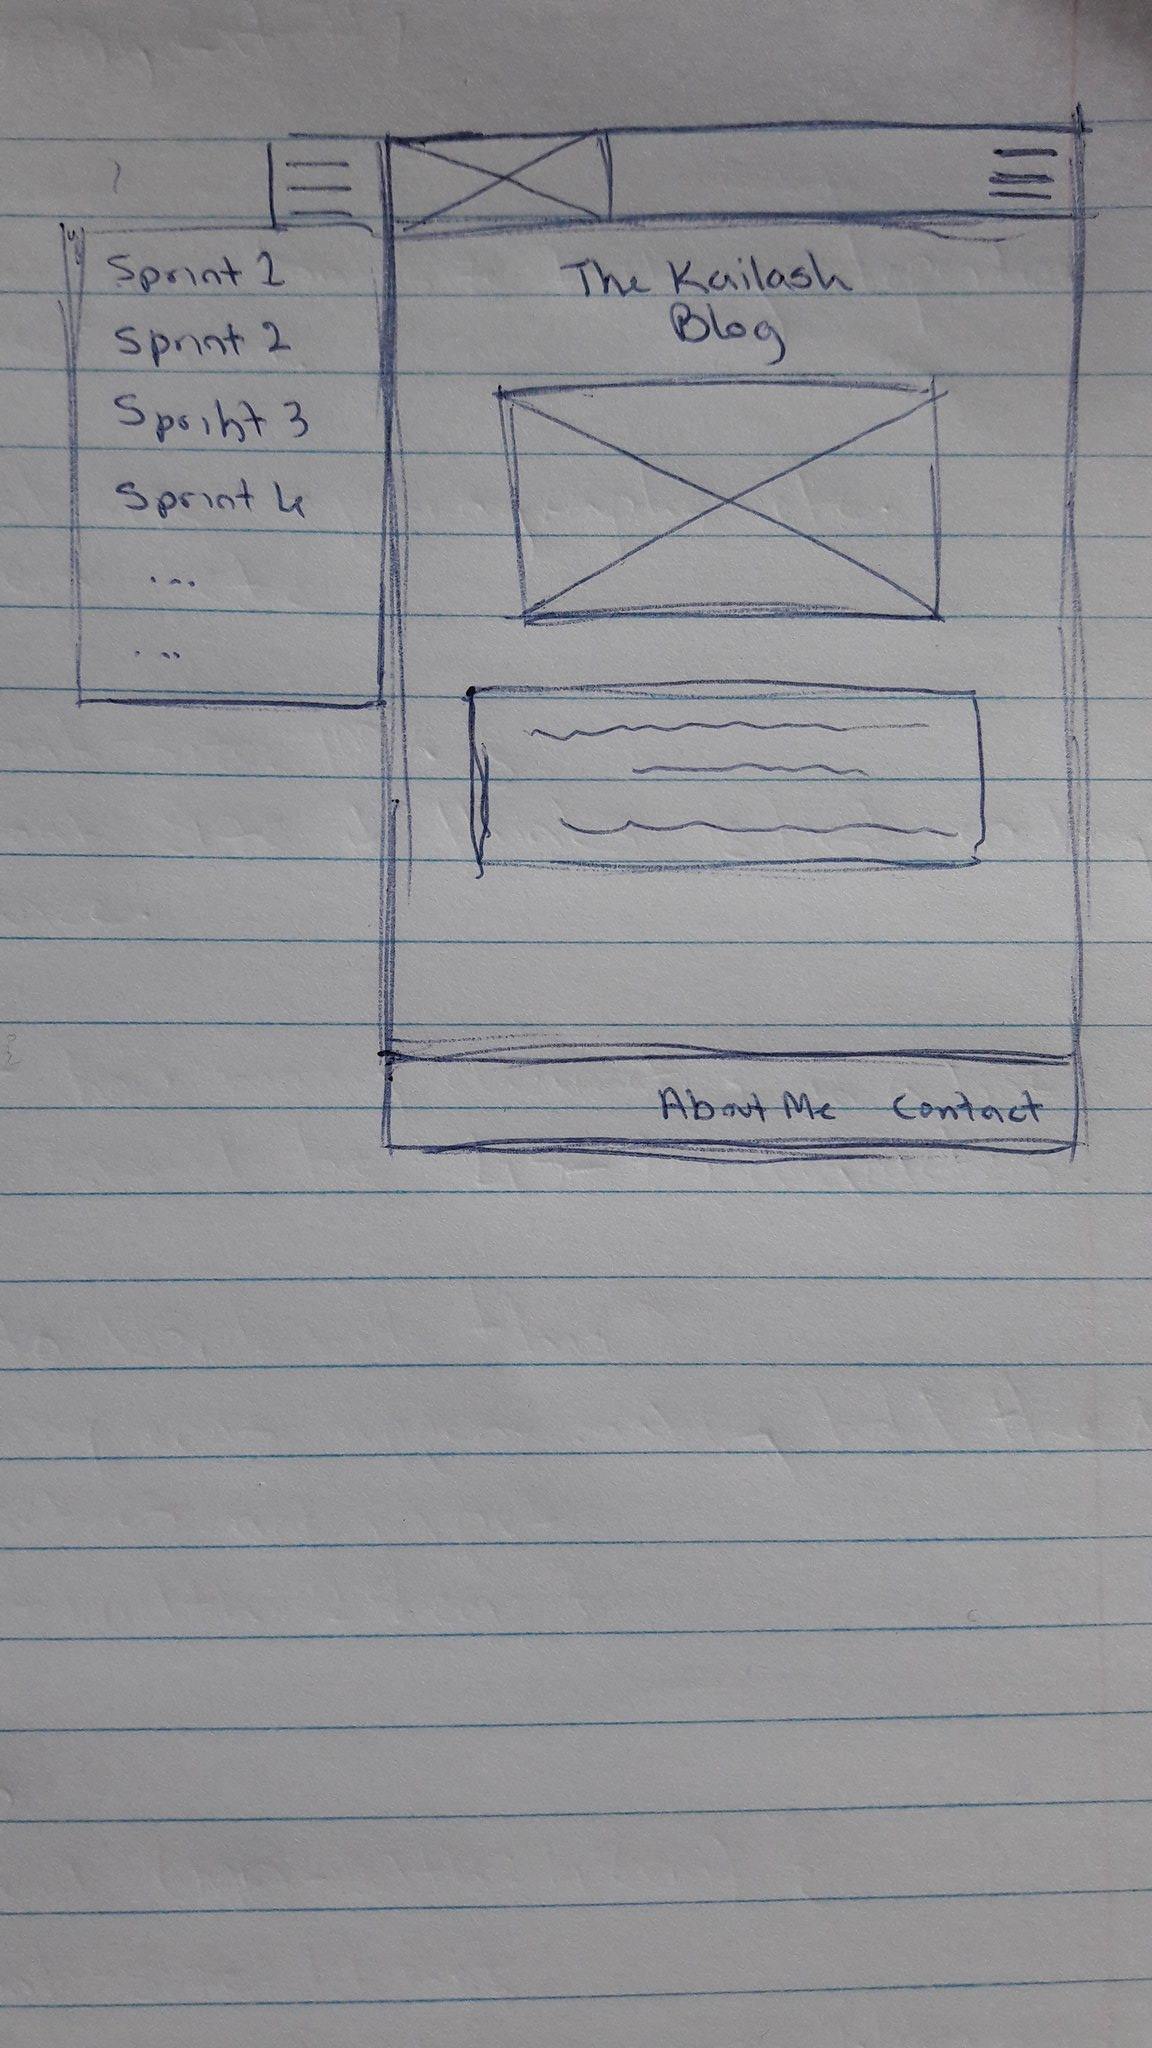 Sprint 1
Sprint 2
Sprint 3
Sprint 4
...
...
The Kailash
Blog
About Me Contact